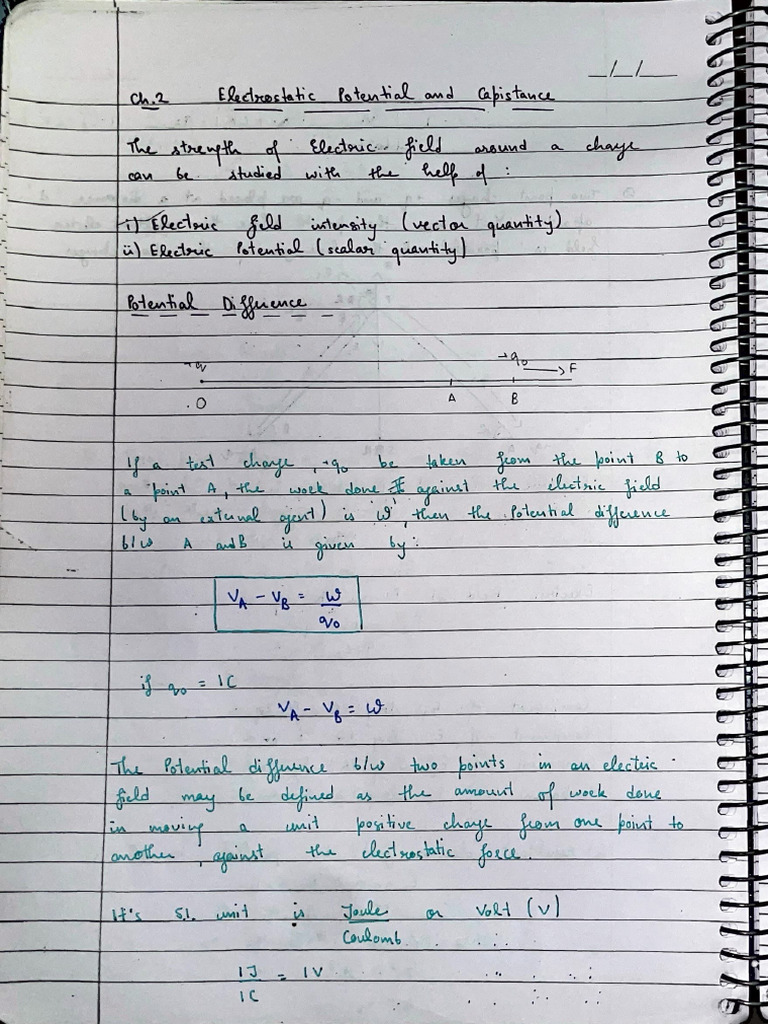 _/_/__
Ch.2 Electrostatic Potential and Capistance
The strength of Electric field around a charge
can be studied with the help of :
i) Electric field intensity (vector quantity)
ii) Electric Potential (scalar quantity)
Potential Diffrence
+q +q₀ → F
O A B
If a test charge, +q₀ be taken from the point B to
a point A, the work done against the electric field
(by an external agent) is W, then the Potential difference
b/w A and B is given by:
V_A - V_B = W/q₀
if q₀ = 1C
V_A - V_B = W
The Potential diffrence b/w two points in an electric
field may be defined as the amount of work done
in moving a unit positive charge from one point to
another, against the electrostatic force.
It's S.I. unit is Joule/Coulomb or Volt (V)
1J/1C = 1V